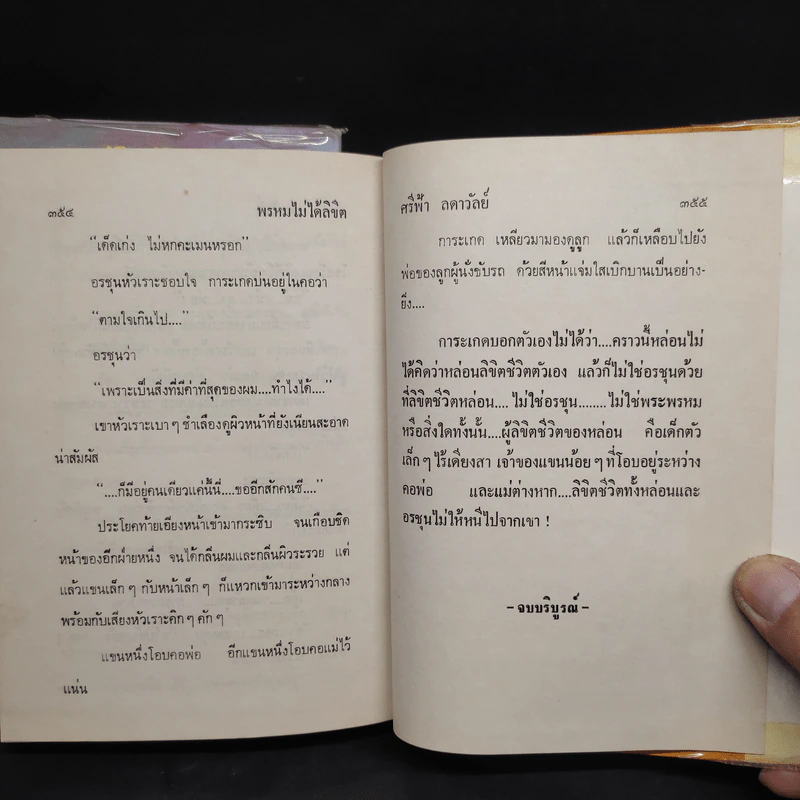 ๓๕๔ พรหมไม่ได้ลิขิต
“เด็ดเก่ง ไม่หกคะเมนหรอก”
อรชุนหัวเราะชอบใจ การะเกดบ่นอยู่ในคอว่า
“ตามใจเกินไป....”
อรชุนว่า
“เพราะเป็นสิ่งที่มีค่าที่สุดของผม....ทำไงได้....”
เขาหัวเราะเบา ๆ ชำเลืองดูผิวหน้าที่ยังเนียนสะอาด
น่าสัมผัส
“....ก็มีอยู่คนเดียวแค่นี้นี่....ขออีกสักคนซี....”
ประโยคท้ายเอียงหน้าเข้ามากระซิบ จนเกือบชิด
หน้าของอีกฝ่ายหนึ่ง จนได้กลิ่นผมและกลิ่นผิวระรวย แต่
แล้วแขนเล็ก ๆ กับหน้าเล็ก ๆ ก็แหวกเข้ามาระหว่างกลาง
พร้อมกับเสียงหัวเราะคิก ๆ คัก ๆ
แขนหนึ่งโอบคอพ่อ อีกแขนหนึ่งโอบคอแม่ไว้
แน่น
ศรีฟ้า ลดาวัลย์ ๓๕๕
การะเกด เหลียวมามองดูลูก แล้วก็เหลือบไปยัง
พ่อของลูกผู้นั่งขับรถ ด้วยสีหน้าแจ่มใสเบิกบานเป็นอย่าง-
ยิ่ง....
การะเกดบอกตัวเองไม่ได้ว่า....คราวนี้หล่อนไม่
ได้คิดว่าหล่อนลิขิตชีวิตตัวเอง แล้วก็ไม่ใช่อรชุนด้วย
ที่ลิขิตชีวิตหล่อน.... ไม่ใช่อรชุน........ไม่ใช่พระพรหม
หรือสิ่งใดทั้งนั้น....ผู้ลิขิตชีวิตของหล่อน คือเด็กตัว
เล็ก ๆ ไร้เดียงสา เจ้าของแขนน้อย ๆ ที่โอบอยู่ระหว่าง
คอพ่อ และแม่ต่างหาก....ลิขิตชีวิตทั้งหล่อนและ
อรชุนไม่ให้หนีไปจากเขา !
- จบบริบูรณ์ -